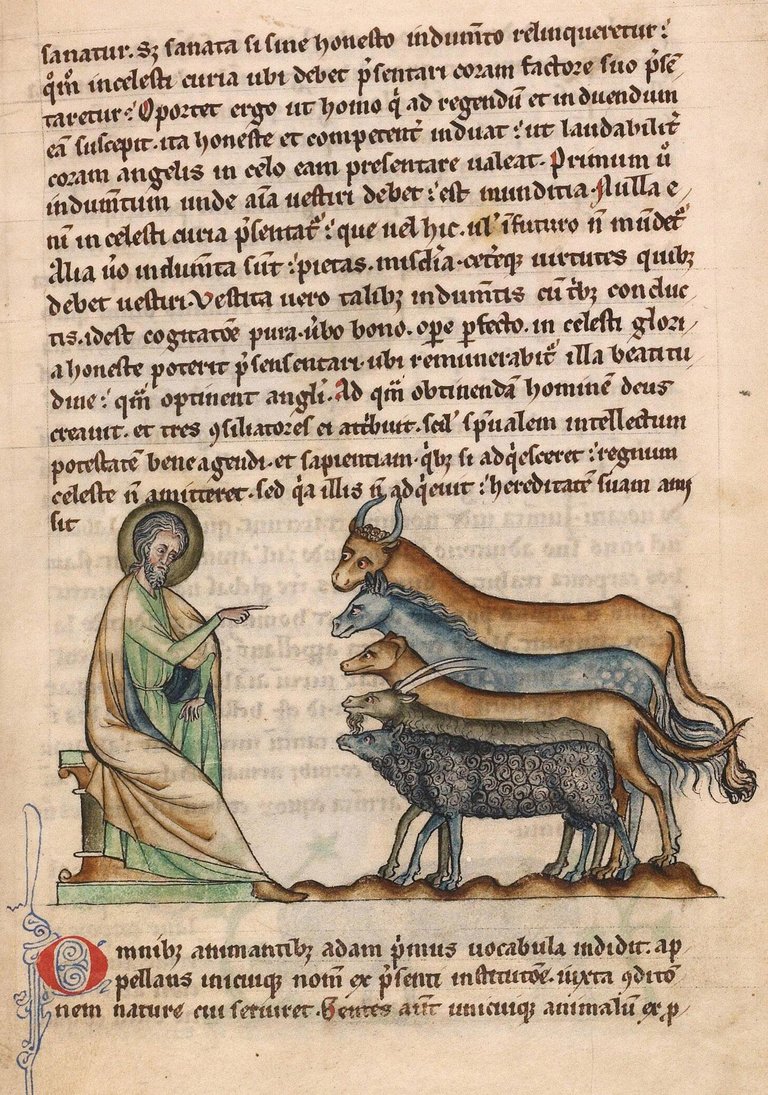 sanatur. Sz sanata si sine honesto indumto relinqueretur:
qm̄ in celesti curia ubi debet p̄sentari coram factore suo p̄sē
taretur: Oportet ergo ut homo q̇ ad regendū et induendum
eā suscepit. ita honeste et competent̄ induat: ut laudabilit̄
coram angelis in celo eam presentare ualeat. Primum ū
indumtum unde aīa uestiri debet: est munditia. Nulla e
nī in celesti curia p̄sentat̄: que uel hic. ul' ī futuro n̄ mūdet̄
Alia ūo indumta sūt: pietas. misc̄dia. ceteq; uirtutes quibz
debet uestiri. Vestita uero talibz indumtis cū t̄bz conduc
tis. idest cogitatōe pura. ūbo bono. ope p̄fecto. in celesti glori
a honeste poterit p̄sensentari. ubi remunerabit̄ illa beatitu
dine: qm̄ optinent angli. Ad qm̄ obtinendā hominē deus
creauit. et tres ꝯsiliatores ei att̄buit. scil' sp̄ualem intellectum
potestatē bene agendi. et sapientiam. q̇bz si adq̇esceret: regnum
celeste n̄ amitteret. sed q̇a illis n̄ adq̇euit: hereditatē suam ami
sit
Omnibz animantibz adam p̄mus uocabula indidit. ap
pellans unicuiq; nom̄ ex p̄senti institutōe. iuxta ꝯditō
nem nature cui seruiret. Gentes aūt unicuiq; animaliū ex p̄